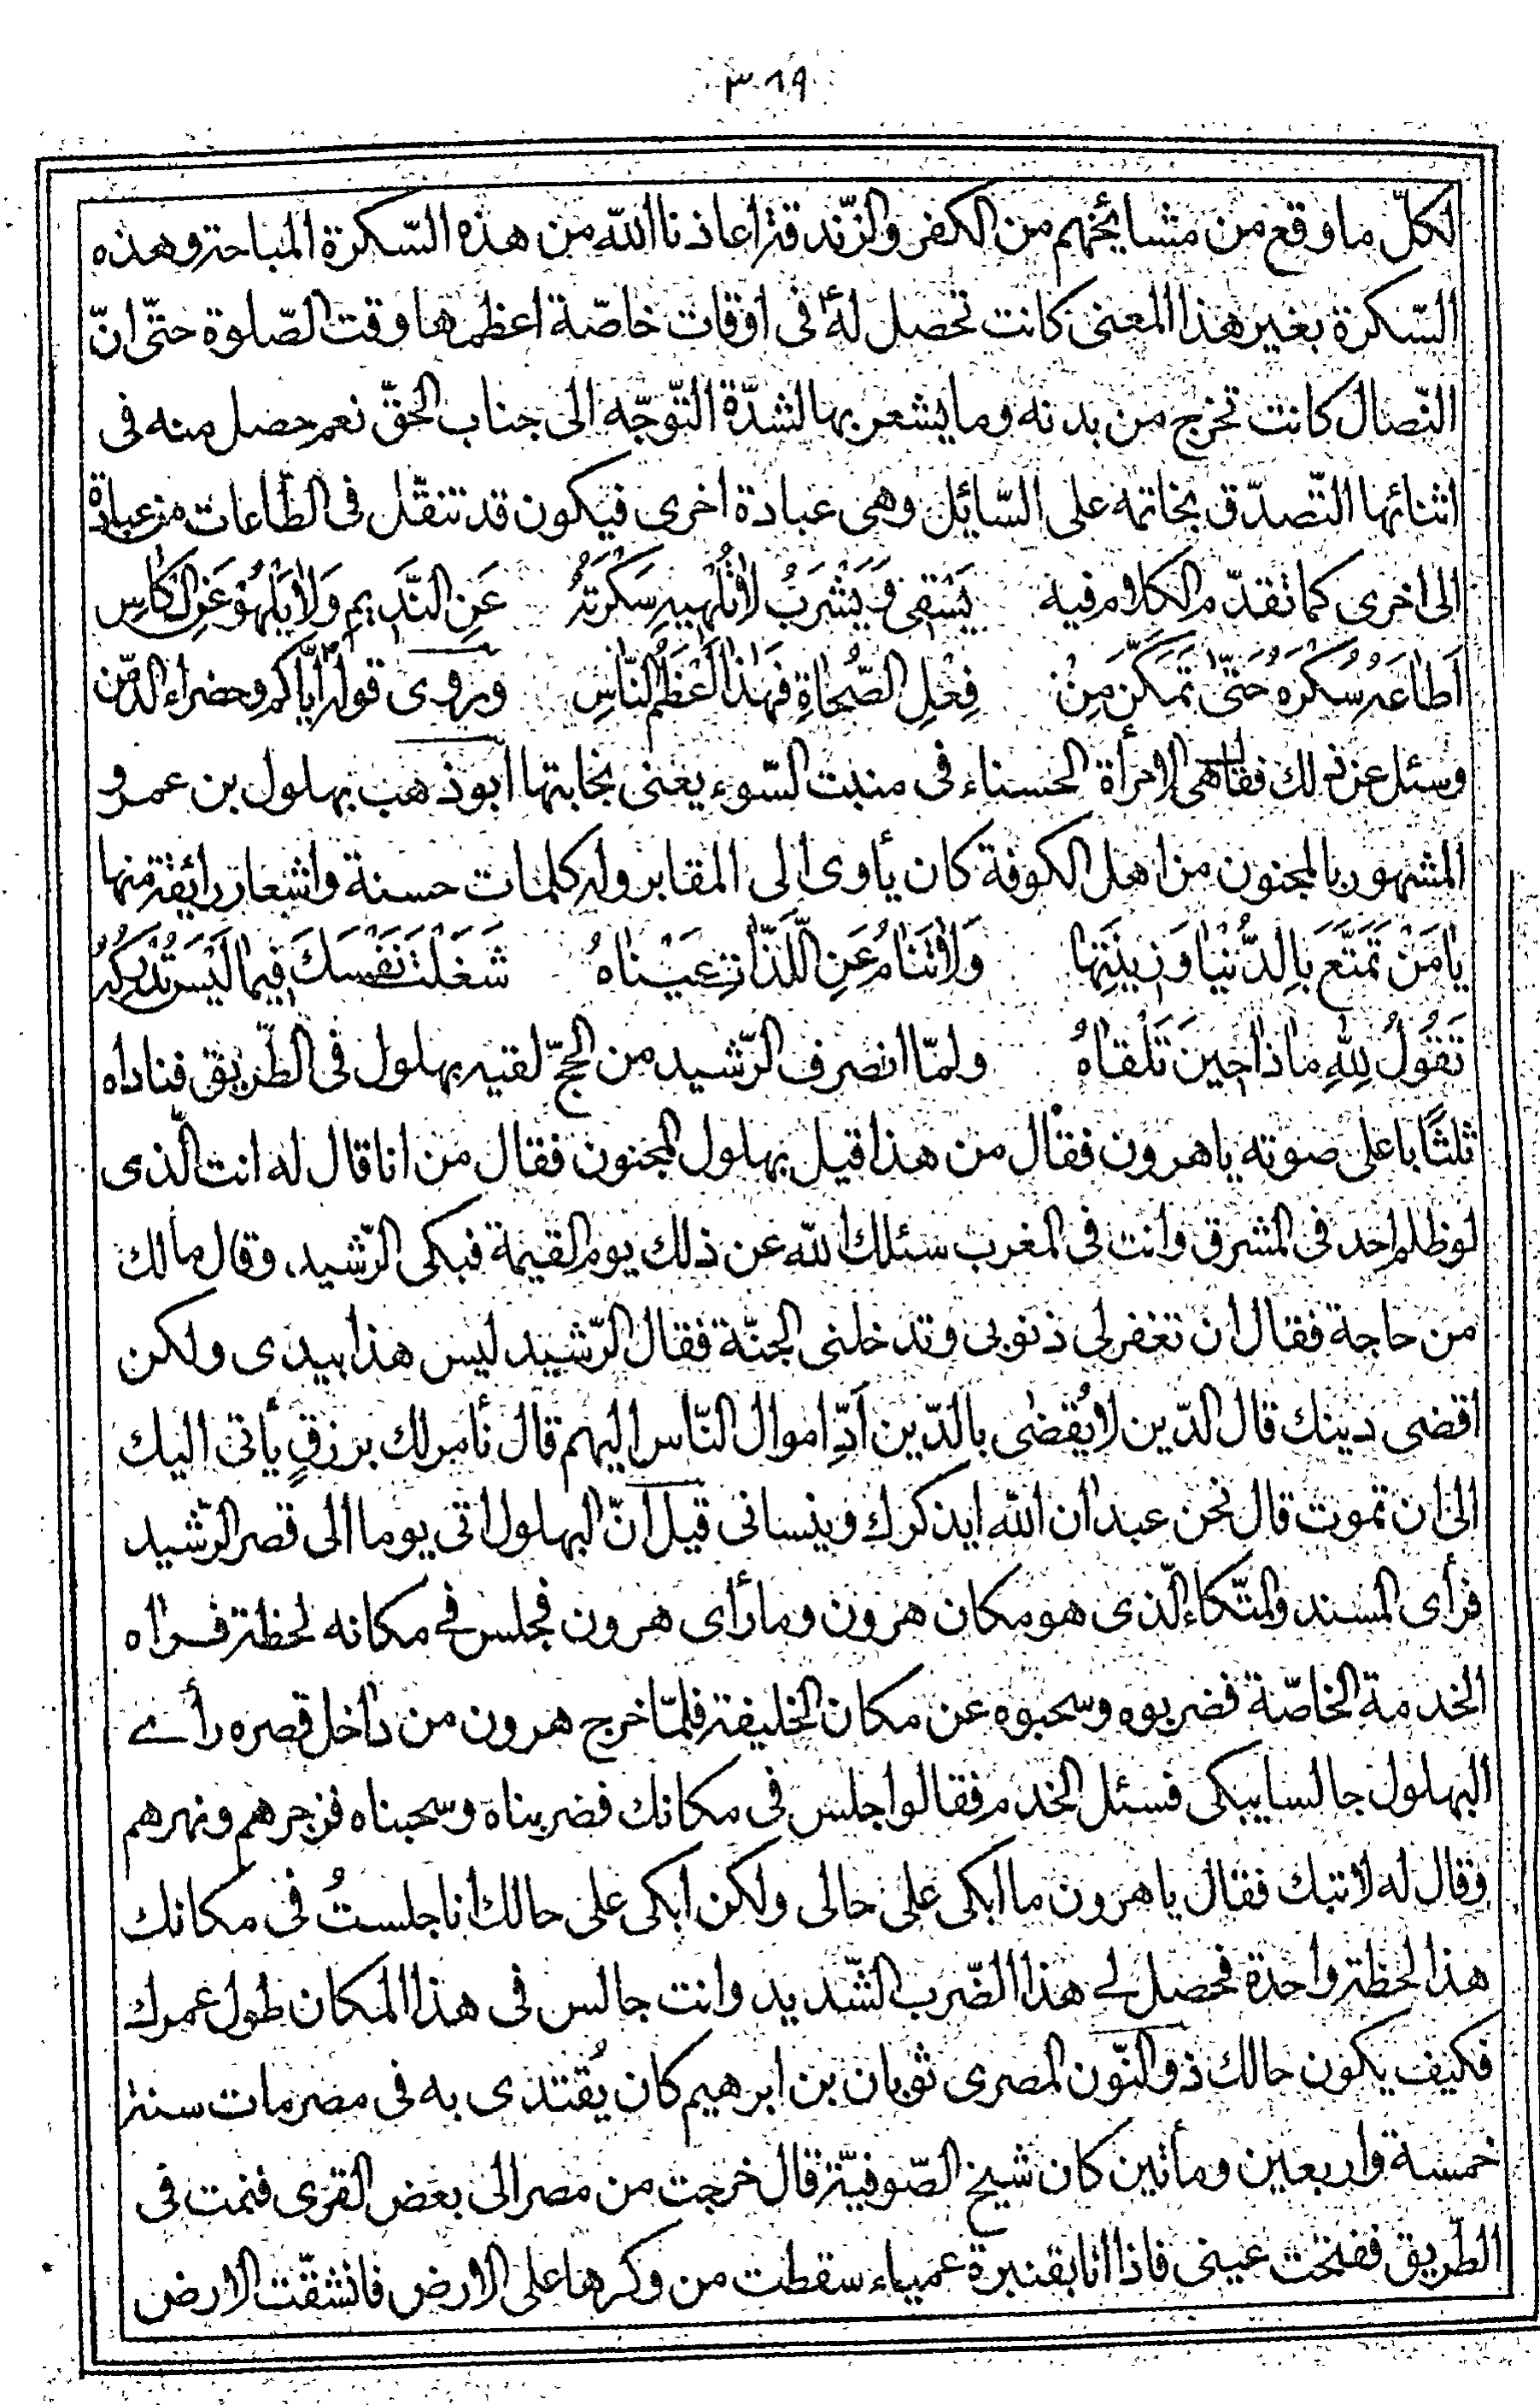 ٣١٩
لكلّ ما وقع من مشايخهم من الكفر والزّندقة اعاذنا الله من هذه السّكرة المباحة وهذه
السّكرة بغير هذا المعنى كانت تحصل له فى اوقات خاصّة اعظمها وقت الصّلوة حتّى انّ
النّصال كانت تخرج من بدنه وما يشعر بها لشدّة التّوجّه الى جناب الحقّ نعم حصل منه فى
اثنائها التّصدّق بخاتمه على السّائل وهى عبادة اخرى فيكون قد تنقّل فى الطّاعات من عبادة
الى اخرى كما تقدّم الكلام فيه يَسْقى وَيَشْرَبُ لاتُلْهيهِ سَكْرَتُهُ عَنِ النَّديمِ وَلايَلْهُوْ عَنِ الْكٰاسِ
اَطاعَهُ سُكْرُهُ حَتّىٰ تَمَكَّنَ مِنْ فِعْلِ الصُّحاةِ فَهٰذا اَعْظَمُ النّاسِ ويروى قوله ايّاكم وخضراء الدّمن
وسئل عن ذلك فقال هى الامرأة الحسناء فى منبت السّوء يعنى نجابتها ابو ذهب بهلول بن عمرو
المشهور بالمجنون من اهل الكوفة كان يأوى الى المقابر وله كلمات حسنة واشعار رائقة منها
يا مَنْ تَمَتَّعَ بِالدُّنْيا وَزينَتِها وَلاتَنامُ عَنِ اللَّذّاتِ عَيْناهُ شَغَلْتَ نَفْسَكَ فيما لَيْسَ تُدْرِكُهُ
تَقُولُ لِلّٰهِ ماذا حينَ تَلْقاهُ ولمّا انصرف الرّشيد من الحجّ لقيه بهلول فى الطّريق فناداه
ثلثًا باعلى صوته يا هرون فقال من هذا قيل بهلول المجنون فقال من انا قال له انت الّذى
لو ظلم احد فى المشرق وانت فى المغرب سئلك الله عن ذلك يوم القيمة فبكى الرّشيد، وقال مالك
من حاجة فقال ان تغفر لى ذنوبى وتدخلنى الجنّة فقال الرّشيد ليس هذا بيدى ولكن
اقضى دينك قال الدّين لا يُقضى بالدّين اَدِّ اموال النّاس اليهم قال نأمر لك برزقٍ يأتى اليك
الى ان تموت قال نحن عبدان الله ايذكرك وينسانى قيل انّ البهلول اتى يوما الى قصر الرّشيد
فرأى المسند والمتّكاء الّذى هو مكان هرون وما رأى هرون فجلس فى مكانه لحظة فراٰه
الخدمة الخاصّة فضربوه وسحبوه عن مكان الخليفة فلمّا خرج هرون من داخل قصره رأى
البهلول جالسا يبكى فسئل الخدم فقالوا جلس فى مكانك فضربناه وسحبناه فزجرهم ونهرهم
وقال له لا تبك فقال يا هرون ما ابكى على حالى ولكن ابكى على حالك انا جلستُ فى مكانك
هذا لحظة واحدة فحصل لى هذا الضّرب الشّديد وانت جالس فى هذا المكان طول عمرك
فكيف يكون حالك ذو النّون المصرى ثوبان بن ابرهيم كان يُقتدى به فى مصر مات سنة
خمسة واربعين ومأتين كان شيخ الصّوفيّة قال خرجت من مصر الى بعض القرى فنمت فى
الطّريق ففتحت عينى فاذا انا بقنبرة عمياء سقطت من وكرها على الارض فانشقّت الارض